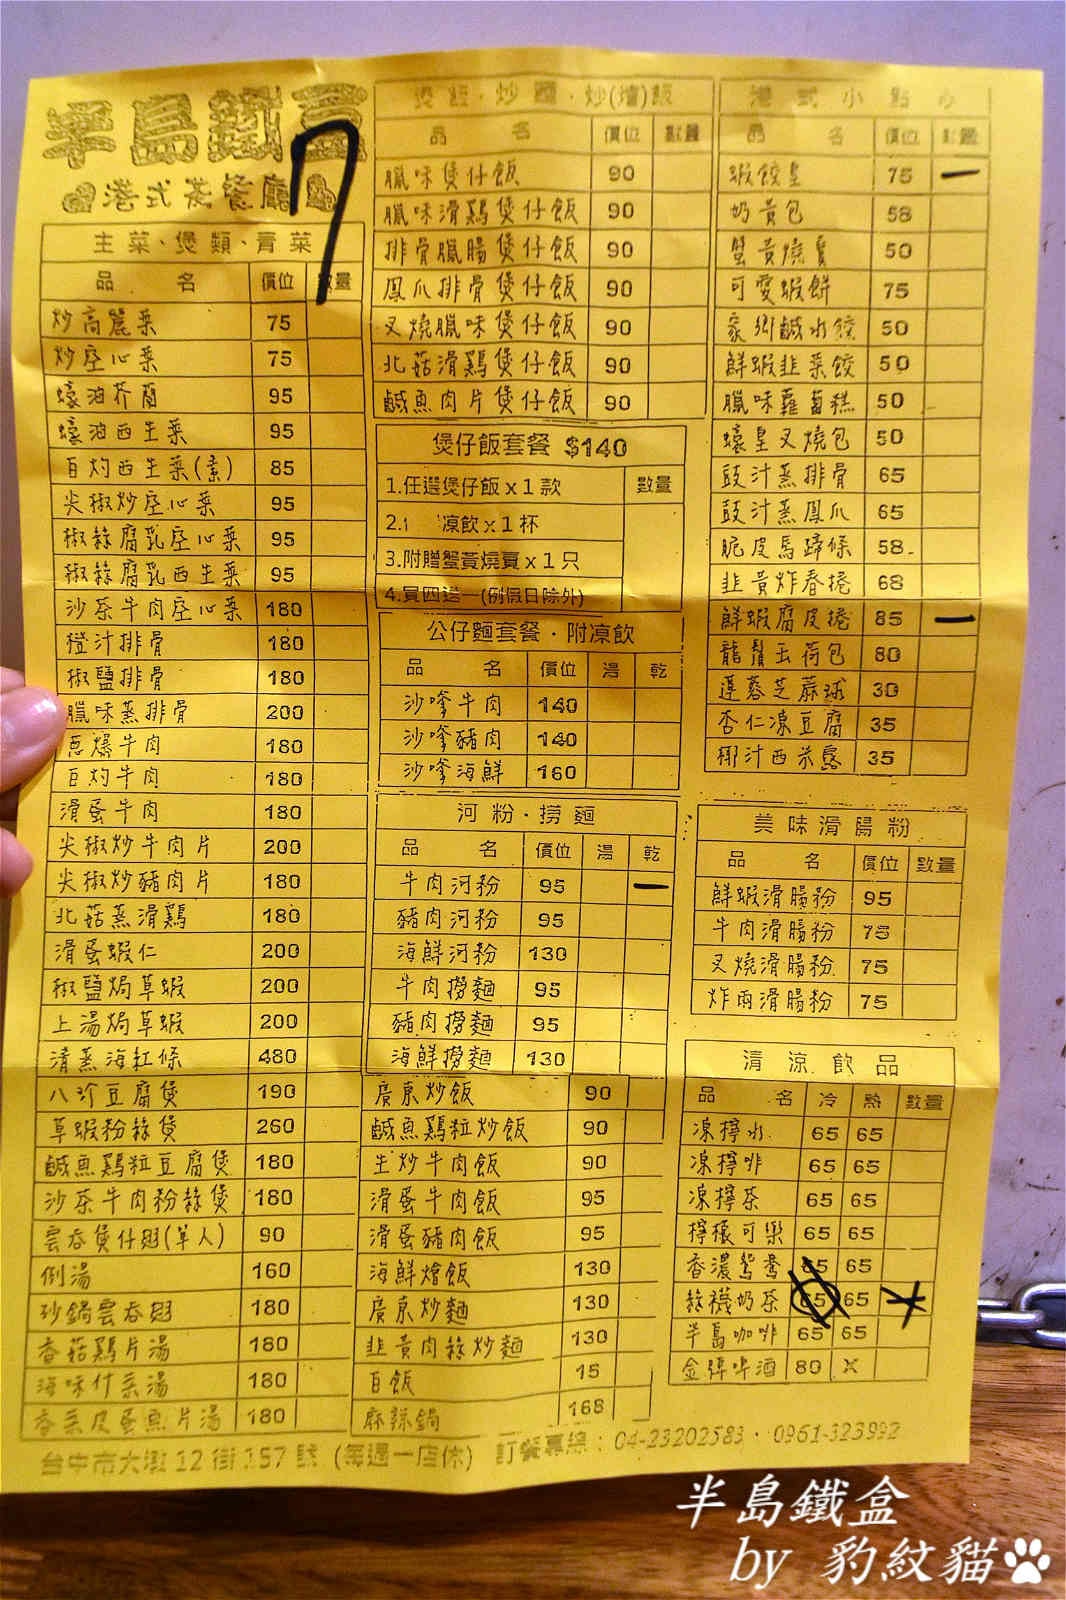 半島鐵盒
港式茶餐廳
7
主菜、煲類、青菜
品 名 價位 數量
炒高麗菜 75
炒空心菜 75
蠔油芥蘭 95
蠔油西生菜 95
白灼西生菜(素) 85
尖椒炒空心菜 95
椒絲腐乳空心菜 95
椒絲腐乳西生菜 95
沙茶牛肉空心菜 180
橙汁排骨 180
椒鹽排骨 180
臘味蒸排骨 200
蔥爆牛肉 180
白灼牛肉 180
滑蛋牛肉 180
尖椒炒牛肉片 200
尖椒炒豬肉片 180
北菇蒸滑鷄 180
滑蛋蝦仁 200
椒鹽焗草蝦 200
上湯焗草蝦 200
清蒸海紅條 480
八珍豆腐煲 190
草蝦粉絲煲 260
鹹魚鷄粒豆腐煲 180
沙茶牛肉粉絲煲 180
雲吞煲仔翅(單人) 90
例湯 160
砂鍋雲吞翅 180
香菇鷄片湯 180
海味什系湯 180
香菜皮蛋魚片湯 180
煲飯·炒麵·炒(燴)飯
品 名 價位 數量
臘味煲仔飯 90
臘味滑鷄煲仔飯 90
排骨臘腸煲仔飯 90
鳳爪排骨煲仔飯 90
叉燒臘味煲仔飯 90
北菇滑鷄煲仔飯 90
鹹魚肉片煲仔飯 90
煲仔飯套餐 $140
1.任選煲仔飯x1款 數量
2. 凉飲x1杯
3.附贈蟹黃燒賣x1只
4.買四送一(例假日除外)
公仔麵套餐·附凉飲
品 名 價位 湯 乾
沙嗲牛肉 140
沙嗲豬肉 140
沙嗲海鮮 160
河粉·撈麵
品 名 價位 湯 乾
牛肉河粉 95 一
豬肉河粉 95
海鮮河粉 130
牛肉撈麵 95
豬肉撈麵 95
海鮮撈麵 130
廣東炒飯 90
鹹魚鷄粒炒飯 90
生炒牛肉飯 90
滑蛋牛肉飯 95
滑蛋豬肉飯 95
海鮮燴飯 130
廣東炒麵 130
韭黃肉絲炒麵 130
白飯 15
麻辣鍋 168
港式小點心
品 名 價位 數量
蝦餃皇 75 一
奶黃包 58
蟹黃燒賣 50
可愛蝦餅 75
家鄉鹹水餃 50
鮮蝦韭菜餃 50
臘味蘿蔔糕 50
蠔皇叉燒包 50
豉汁蒸排骨 65
豉汁蒸鳳爪 65
脆皮馬蹄條 58
韭黃炸春捲 68
鮮蝦腐皮捲 85 一
龍鬚玉荷包 80
蓮蓉芝蔴球 30
杏仁凍豆腐 35
椰汁西米露 35
美味滑腸粉
品 名 價位 數量
鮮蝦滑腸粉 95
牛肉滑腸粉 75
叉燒滑腸粉 75
炸兩滑腸粉 75
清涼飲品
品 名 冷 熱 數量
凍檸水 65 65
凍檸啡 65 65
凍檸茶 65 65
檸檬可樂 65 65
香濃鴛鴦 65 65
絲襪奶茶 65 65
半島咖啡 65 65
金牌啤酒 80 X
台中市大墩12街157號 (每週一店休) 訂餐專線：04-23202583·0961-323992
半島鐵盒
by 豹紋貓